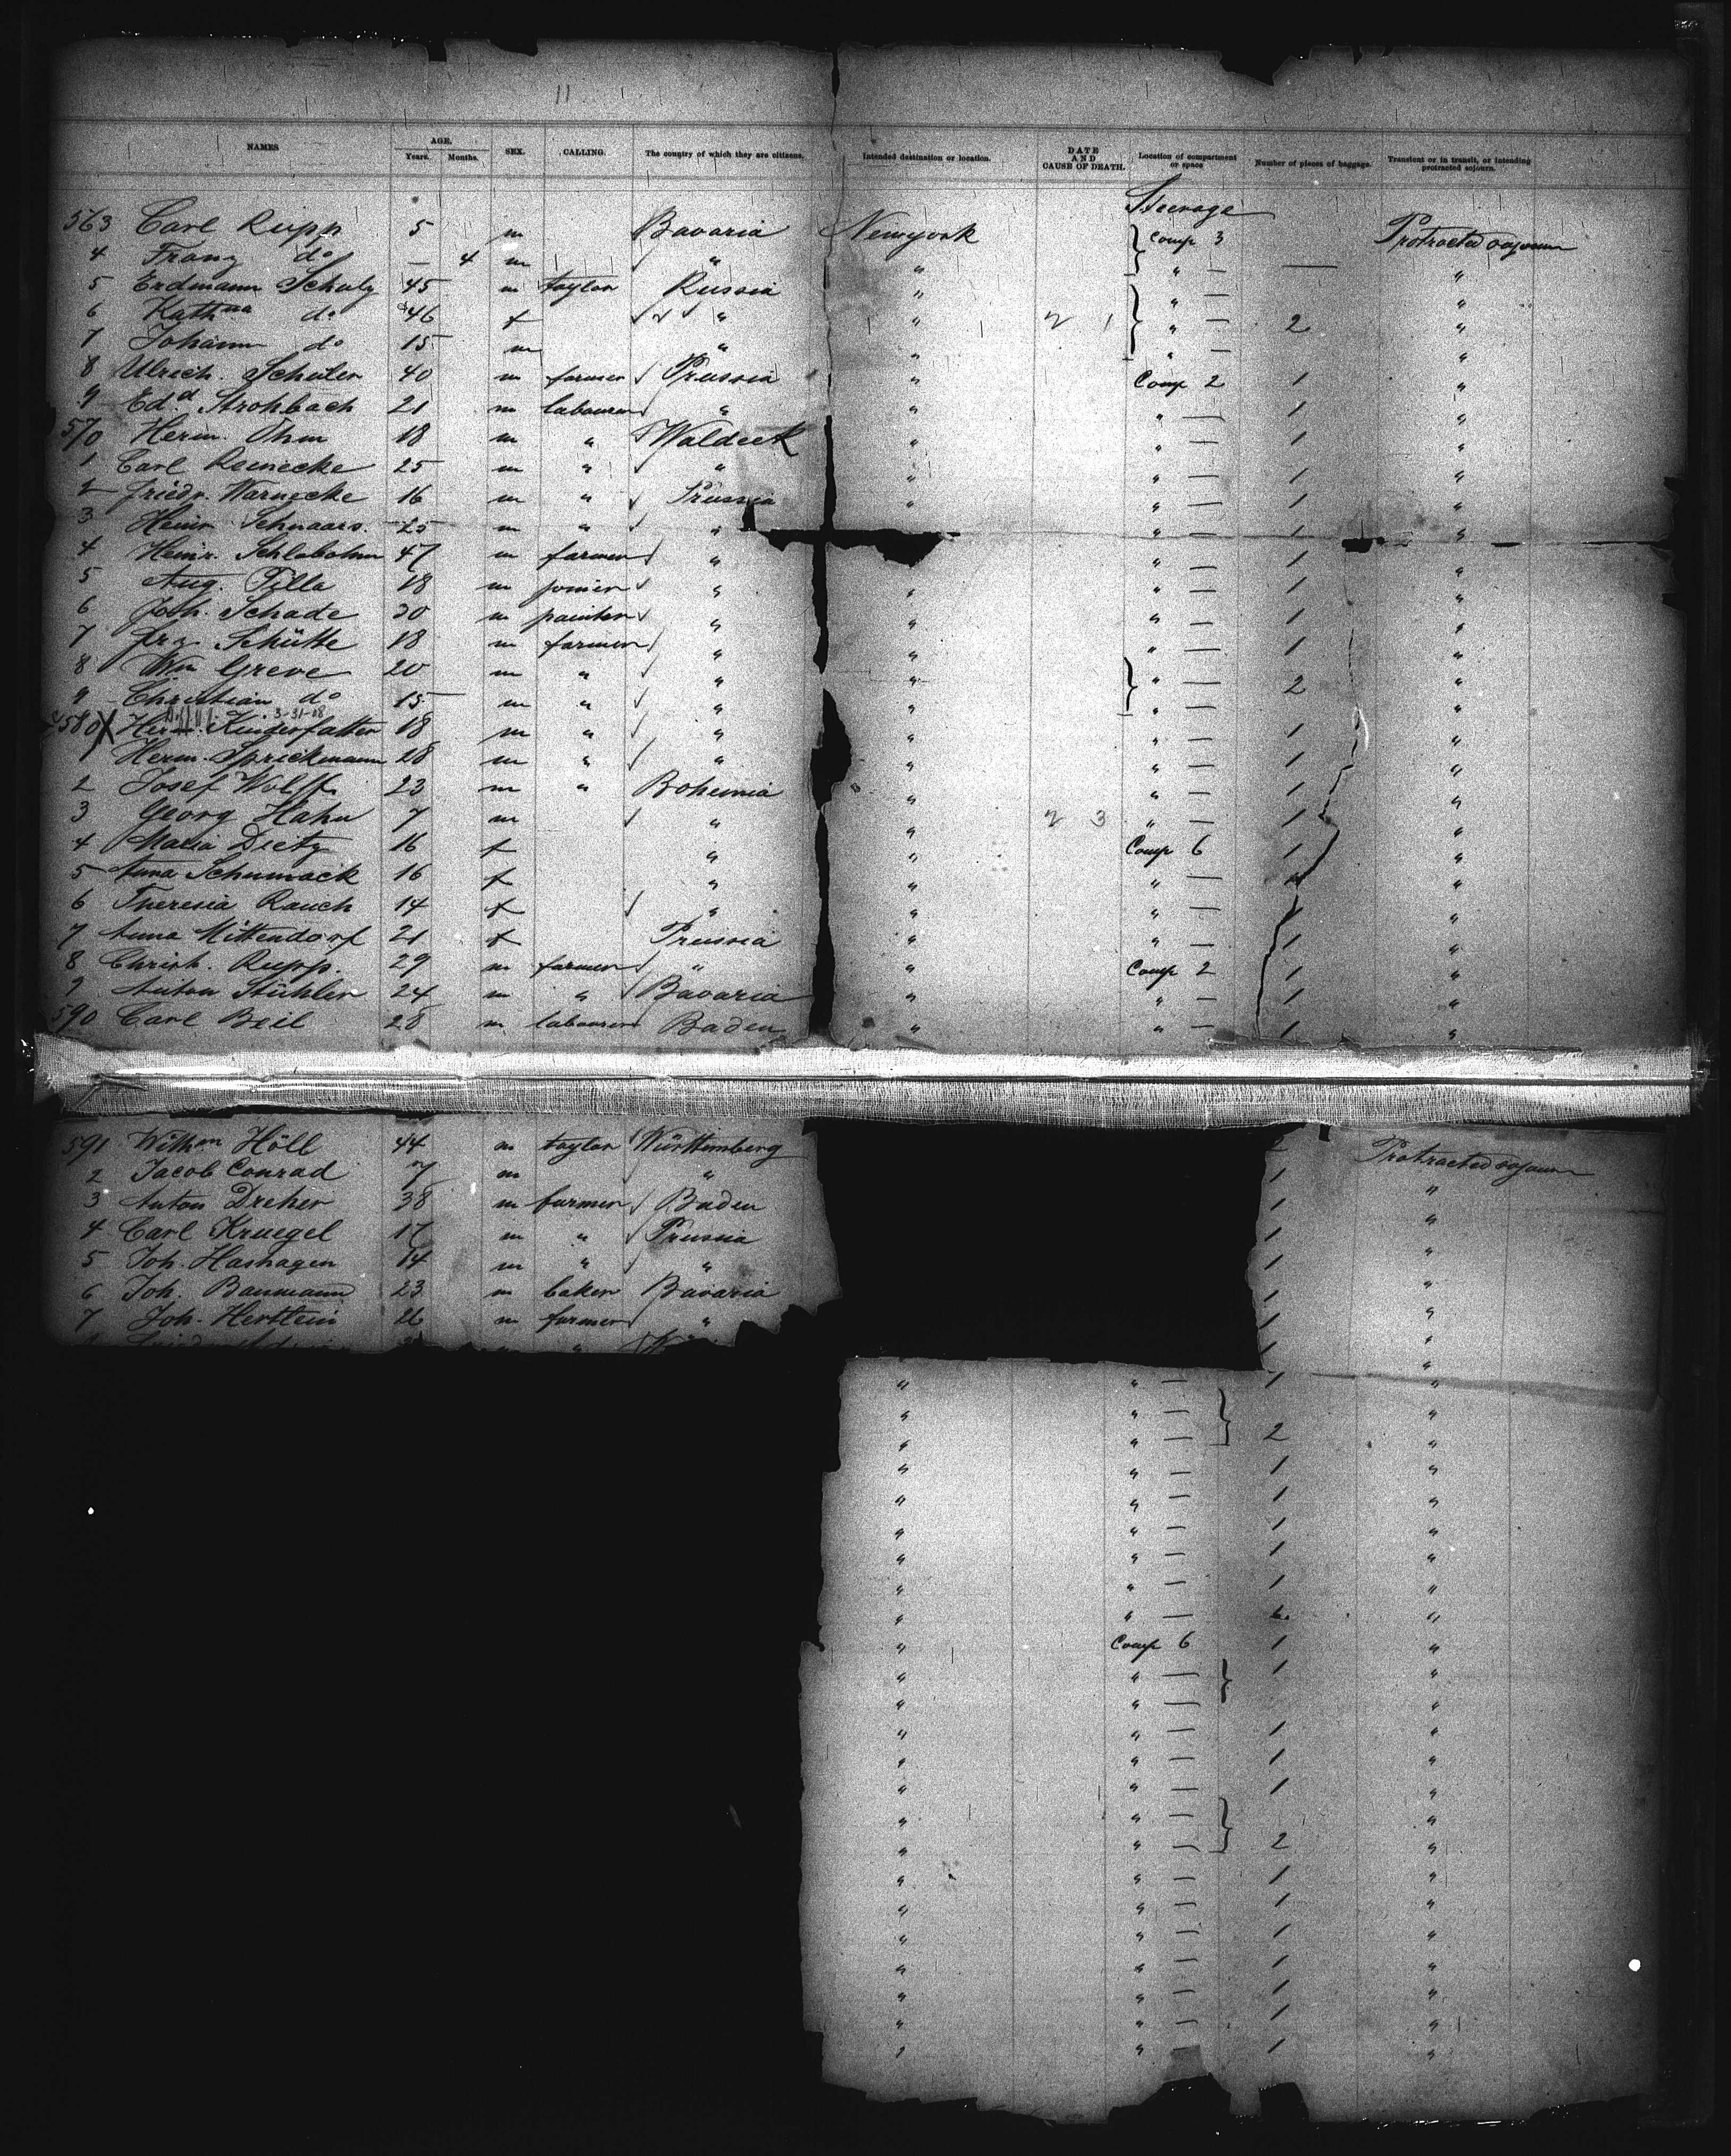 11
NAMES AGE. Years. Months. SEX. CALLING. The country of which they are citizens. Intended destination or location. DATE AND CAUSE OF DEATH. Location of compartment or space Number of pieces of baggage. Transient or in transit, or intending protracted sojourn.
Steerage
563 Carl Rupp 5 m Bavaria Newyork Comp 3 Protracted sojourn
4 Franz do — 4 m " " " — — "
5 Erdmann Schulz 45 m taylor Russia " " — "
6 Kathna do 46 f " " " — 2 "
7 Johann do 15 m " " " — "
8 Ulrich Schuler 40 m farmer Prussia " Comp 2 1 "
9 Edd Strohbach 21 m labourer " " " — 1 "
570 Herm. Ohm 18 m " Waldeck " " — 1 "
1 Carl Reinecke 25 m " " " " — 1 "
2 Friedr. Warnecke 16 m " Prussia " " — 1 "
3 Heinr. Schnaars 25 m " " " — 1 "
4 Heinr. Schlobohm 47 m farmer " " — 1 "
5 Aug. 18 m joiner " " " — 1 "
6 Joh. Schade 30 m painter " " " — 1 "
7 Frz. Schütte 18 m farmer " " " — 1 "
8 Wm Greve 20 m " " " " — 2 "
9 Christian do 15 m " " " " — "
3-31-08
580 X Herm. Kinderfatter 18 m " " " " — 1 "
1 Herm. Sprickmann 28 m " " " " — 1 "
2 Josef Wolff 23 m " Bohemia " " — 1 "
3 Georg Hahn 7 m " " 2 3 " — 1 "
4 Maria Dietz 16 f " " Comp 6 1 "
5 Anna Schumack 16 f " " " — 1 "
6 Theresia Rauch 14 f " " " — 1 "
7 Anna Mittendorf 21 f Prussia " " — 1 "
8 Christ. Rupp. 29 m farmer " " Comp 2 1 "
9 Anton Stühler 24 m " Bavaria " " — 1 "
590 Carl Beil 28 m labourer Baden " " — 1 "
591 Wilhm Höll 44 m taylor Württemberg 2 Protracted sojourn
2 Jacob Conrad 7 m " 1 "
3 Anton Dreher 38 m farmer Baden 1 "
4 Carl Kruegel 17 m " Prussia 1 "
5 Joh. Hashagen 14 m " " 1 "
6 Joh. Baumann 23 m baker Bavaria 1 "
7 Joh. Hertlein 26 m farmer " 1 "
" " — 1 "
" " — "
" " — 2 "
" " — 1 "
" " — 1 "
" " — 1 "
" " — 1 "
" " — 1 "
" " — "
" Comp 6 1 "
" " — 1 "
" " —
" " — 1 "
" " — 1 "
" " — 1 "
" " — "
" " — 2 "
" " — 1 "
" " — 1 "
" " — 1 "
" " — 1 "
" " — 1 "
" " — 1 "
" " — 1 "